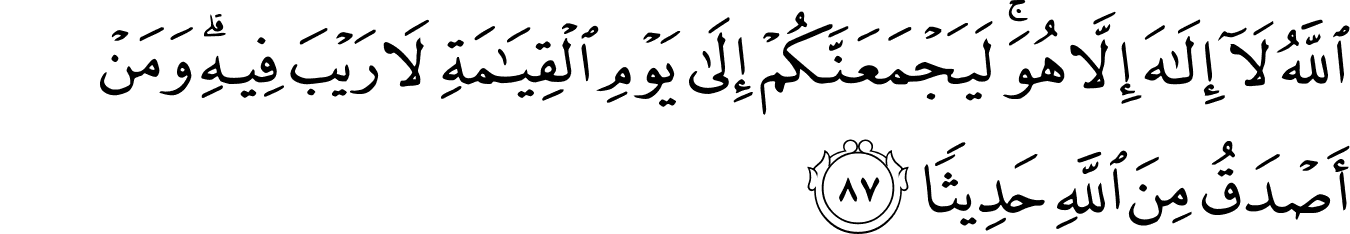 ٱللَّهُ لَآ إِلَـٰهَ إِلَّا هُوَ ۚ لَيَجْمَعَنَّكُمْ إِلَىٰ يَوْمِ ٱلْقِيَـٰمَةِ لَا رَيْبَ فِيهِ ۗ وَمَنْ
أَصْدَقُ مِنَ ٱللَّهِ حَدِيثًا ٨٧